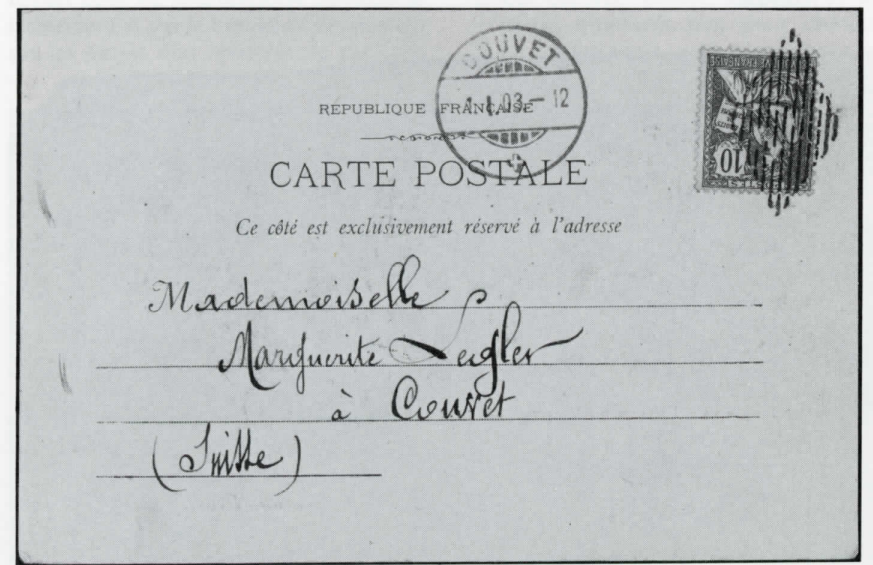 COUVET
1.I.03–12
RÉPUBLIQUE FRANÇAISE
CARTE POSTALE
Ce côté est exclusivement réservé à l'adresse
10
Mademoiselle
Marguerite
à Couvet
(Suisse)